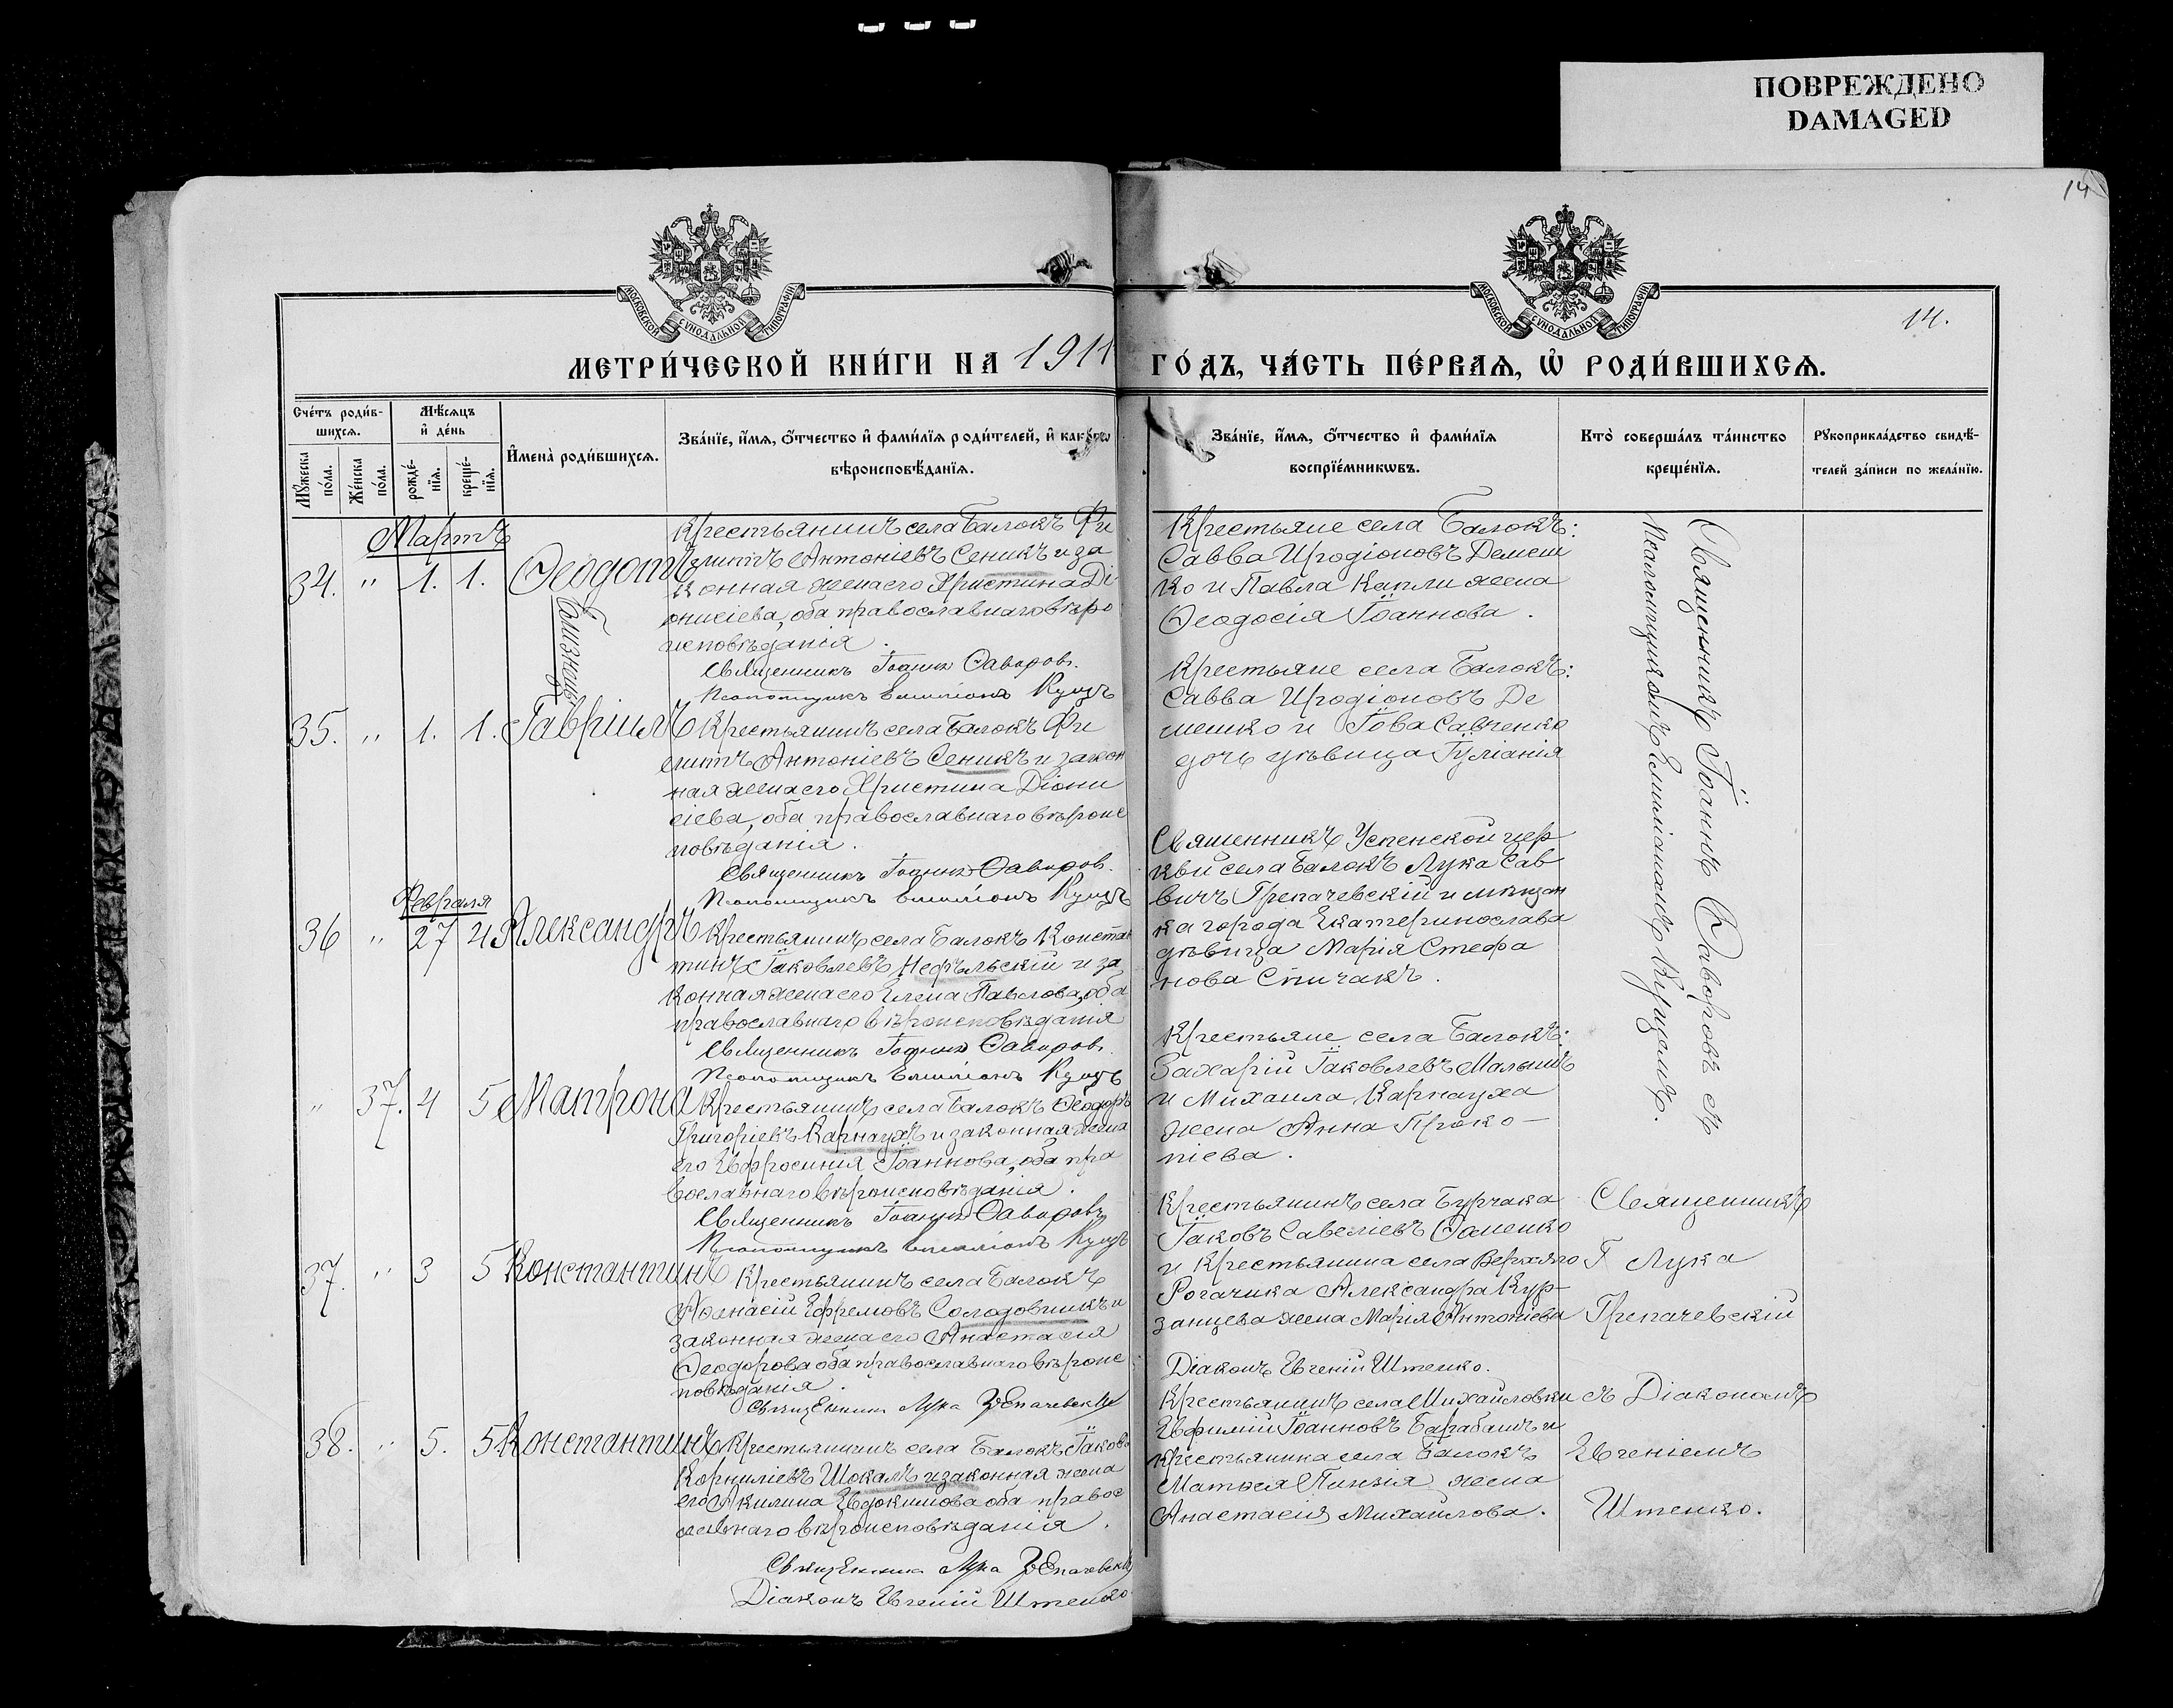 ПОВРЕЖДЕНО
DAMAGED
14
14.
МОСКОВСКОЙ СѴНОДАЛЬНОЙ ТИПОГРАФІИ
МОСКОВСКОЙ СѴНОДАЛЬНОЙ ТИПОГРАФІИ
МЕТРИ́ЧЕСКОЙ КНИ́ГИ НА 1911 ГО́ДЪ, ЧА́СТЬ ПЕ́РВАѦ, Ѽ РОДИ́ВШИХСѦ.
Сче́тъ роди́в-
шихсѧ.
Мꙋ́жеска по́ла.
Же́нска по́ла.
Мѣ́сѧцъ
и҆ де́нь
рожде́-
нїѧ.
креще́-
нїѧ.
И҆мена̀ роди́вшихсѧ.
Зва́нїе, и҆́мѧ, ѻ҆́тчество и҆ фами́лїѧ роди́телей, и҆ како́гѡ
вѣроисповѣ́данїѧ.
Зва́нїе, и҆́мѧ, ѻ҆́тчество и҆ фами́лїѧ
воспрїе́мникѡвъ.
Кто̀ соверша́лъ та́инство
креще́нїѧ.
Рꙋкоприкла́дство свидѣ́-
телей за́писи по жела́нїю.
Мартъ
34. " 1. 1. Ѳеодотъ
Близнецы
Крестьянинъ села Балокъ Фи
липпъ Антоніевъ Сеникъ и за
конная жена его Христина Ді
онисіева, оба православнаго вѣро
исповѣданія.
Священникъ Іоаннъ Ѳаворовъ.
Псаломщикъ Емиліанъ Куцъ
Крестьяне села Балокъ:
Савва Иродіоновъ Демеш
ко и Павла Капли жена
Ѳеодосія Іоаннова.
35. " 1. 1. Гавріилъ
Крестьянинъ села Балокъ Фи
липпъ Антоніевъ Сеникъ и закон
ная жена его Христина Діони
сіева, оба православнаго вѣроис
повѣданія.
Священникъ Іоаннъ Ѳаворовъ.
Псаломщикъ Емиліанъ Куцъ
Крестьяне села Балокъ:
Савва Иродіоновъ Де
мешко и Іова Савченко
дочь дѣвица Іуліанія
Февраля
36 " 27 4 Александръ
Крестьянинъ села Балокъ Констан
тинъ Іаковлевъ и за
конная жена его Елена Павлова, оба
православнаго вѣроисповѣданія
Священникъ Іоаннъ Ѳаворовъ.
Псаломщикъ Емиліанъ Куцъ
Священникъ Успенской цер
кви села Балокъ Лука Сав
вичъ Грепачевскій и мѣщан
ка города Екатеринослава
дѣвица Марія Стефа
нова Спичакъ.
" 37. 4 5 Матрона
Крестьянинъ села Балокъ Ѳеодоръ
Григоріевъ Карнаухъ и законная жена
его Евфросинія Іоаннова, оба пра
вославнаго вѣроисповѣданія.
Священникъ Іоаннъ Ѳаворовъ
Псаломщикъ Емиліанъ Куцъ
Крестьяне села Балокъ:
Захарій Іаковлевъ Малышъ
и Михаила Карнауха
жена Анна Проко-
піева.
Священникъ Іоаннъ Ѳаворовъ съ
Псаломщикомъ Емиліаномъ Куцемъ.
37. " 3 5 Константинъ
Крестьянинъ села Балокъ
Аѳанасій Ефремовъ Солодовникъ и
законная жена его Анастасія
Ѳеодорова оба православнаго вѣроис
повѣданія.
Священникъ Лука Грепачевскій
Крестьянинъ села Бурчака
Іаковъ Савеліевъ Фоменко
и крестьянина села Верхняго
Рогачика Александра Кур-
занцева жена Марія Антоніева
Діаконъ Евгеній Штенко.
38. " 5. 5 Константинъ
Крестьянинъ села Балокъ Іаковъ
Корниліевъ Шокалъ и законная жена
его Акилина Евдокимова оба правос
лавнаго вѣроисповѣданія.
Священникъ Лука Грепачевскій
Діаконъ Евгеній Штенко
Крестьянинъ села Михайловки
Евфимій Іоанновъ Барабашъ и
крестьянина села Балокъ
Матѳея жена
Анастасія Михайлова.
Священникъ
Лука
Грепачевскій
съ Діакономъ
Евгеніемъ
Штенко.